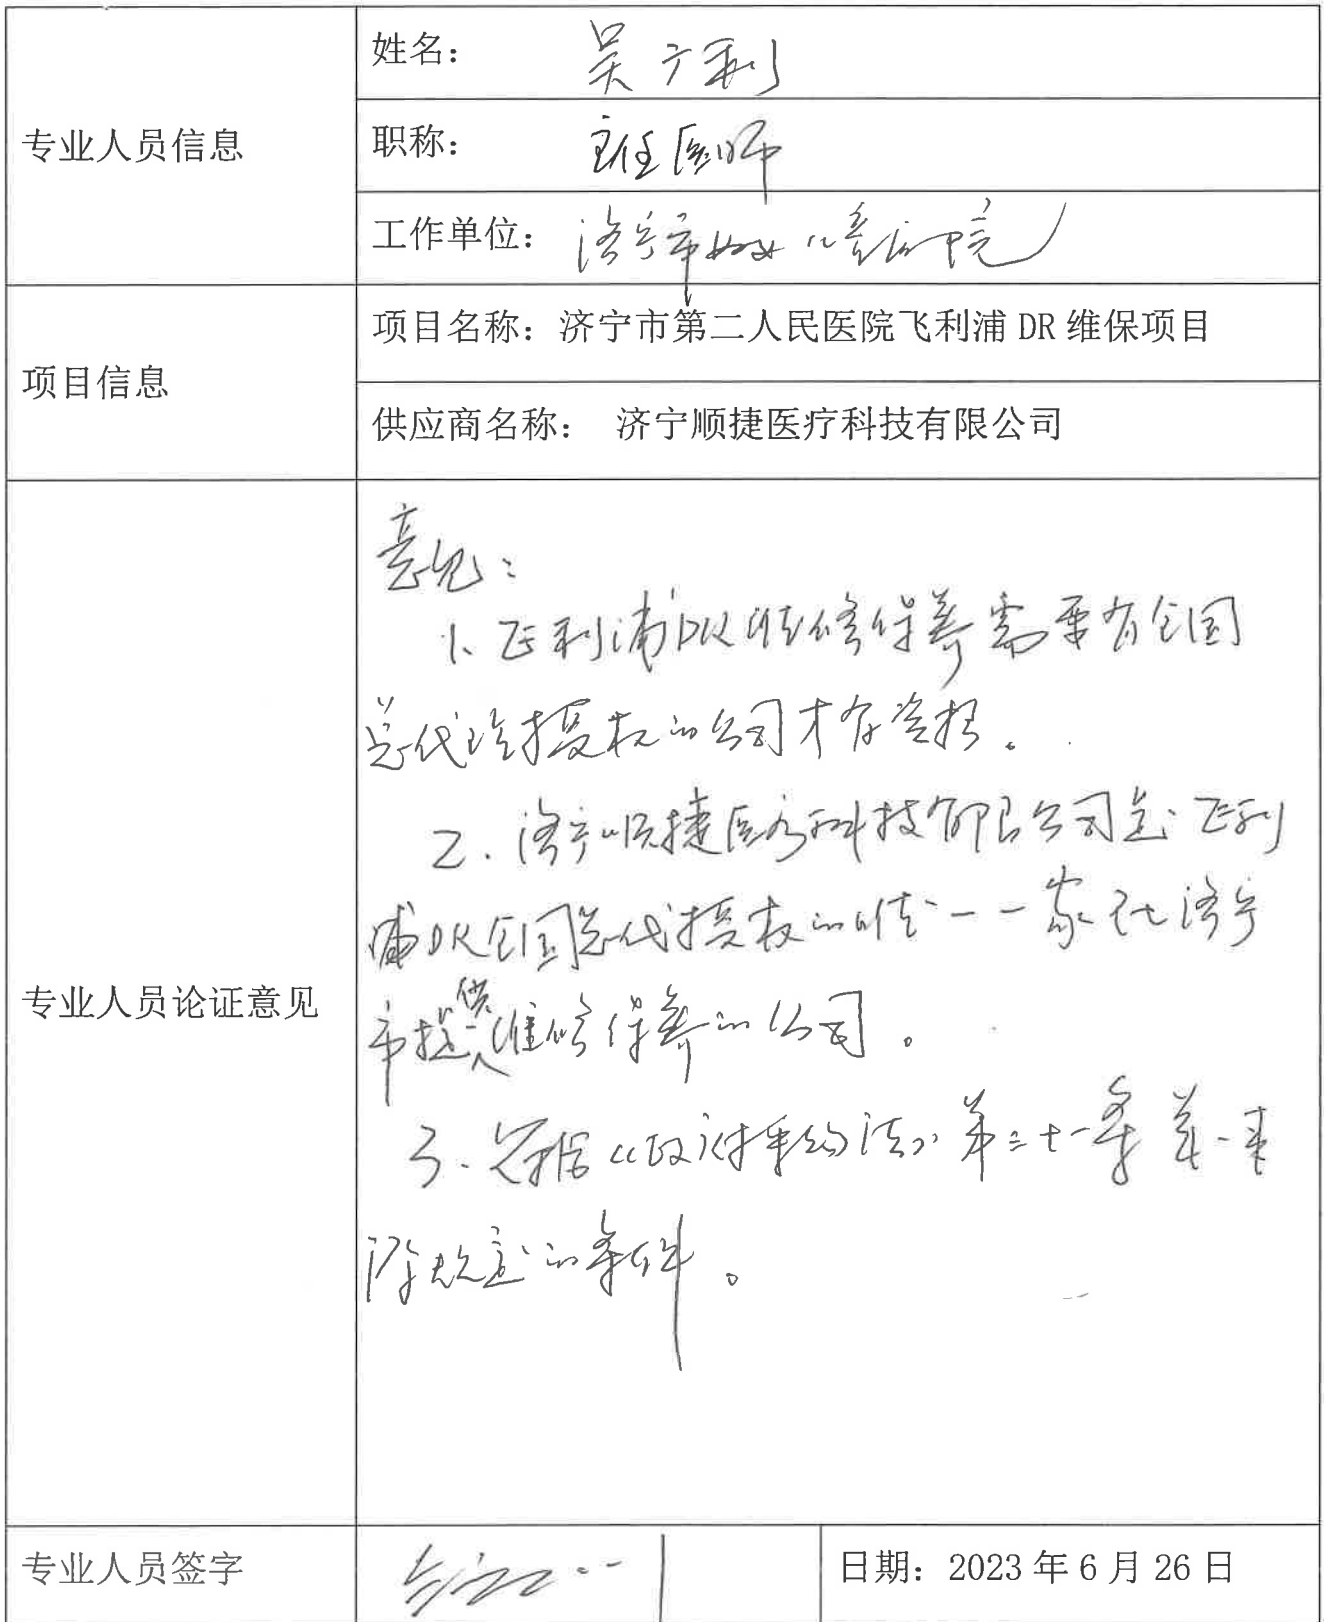 姓名： 吴广利
专业人员信息
职称： 主任医师
工作单位： 济宁市妇女儿童医院
项目名称：济宁市第二人民医院飞利浦 DR 维保项目
项目信息
供应商名称： 济宁顺捷医疗科技有限公司
意见：
1、飞利浦DR维修保养需要有全国
总代理授权的公司才有资格。
2、济宁顺捷医疗科技有限公司是飞利
浦DR全国总代授权的唯一一家在济宁
市提供维修保养的公司。
专业人员论证意见
3、根据《政府采购法》第三十一条第一
规定的条件。
专业人员签字
日期：2023 年 6 月 26 日